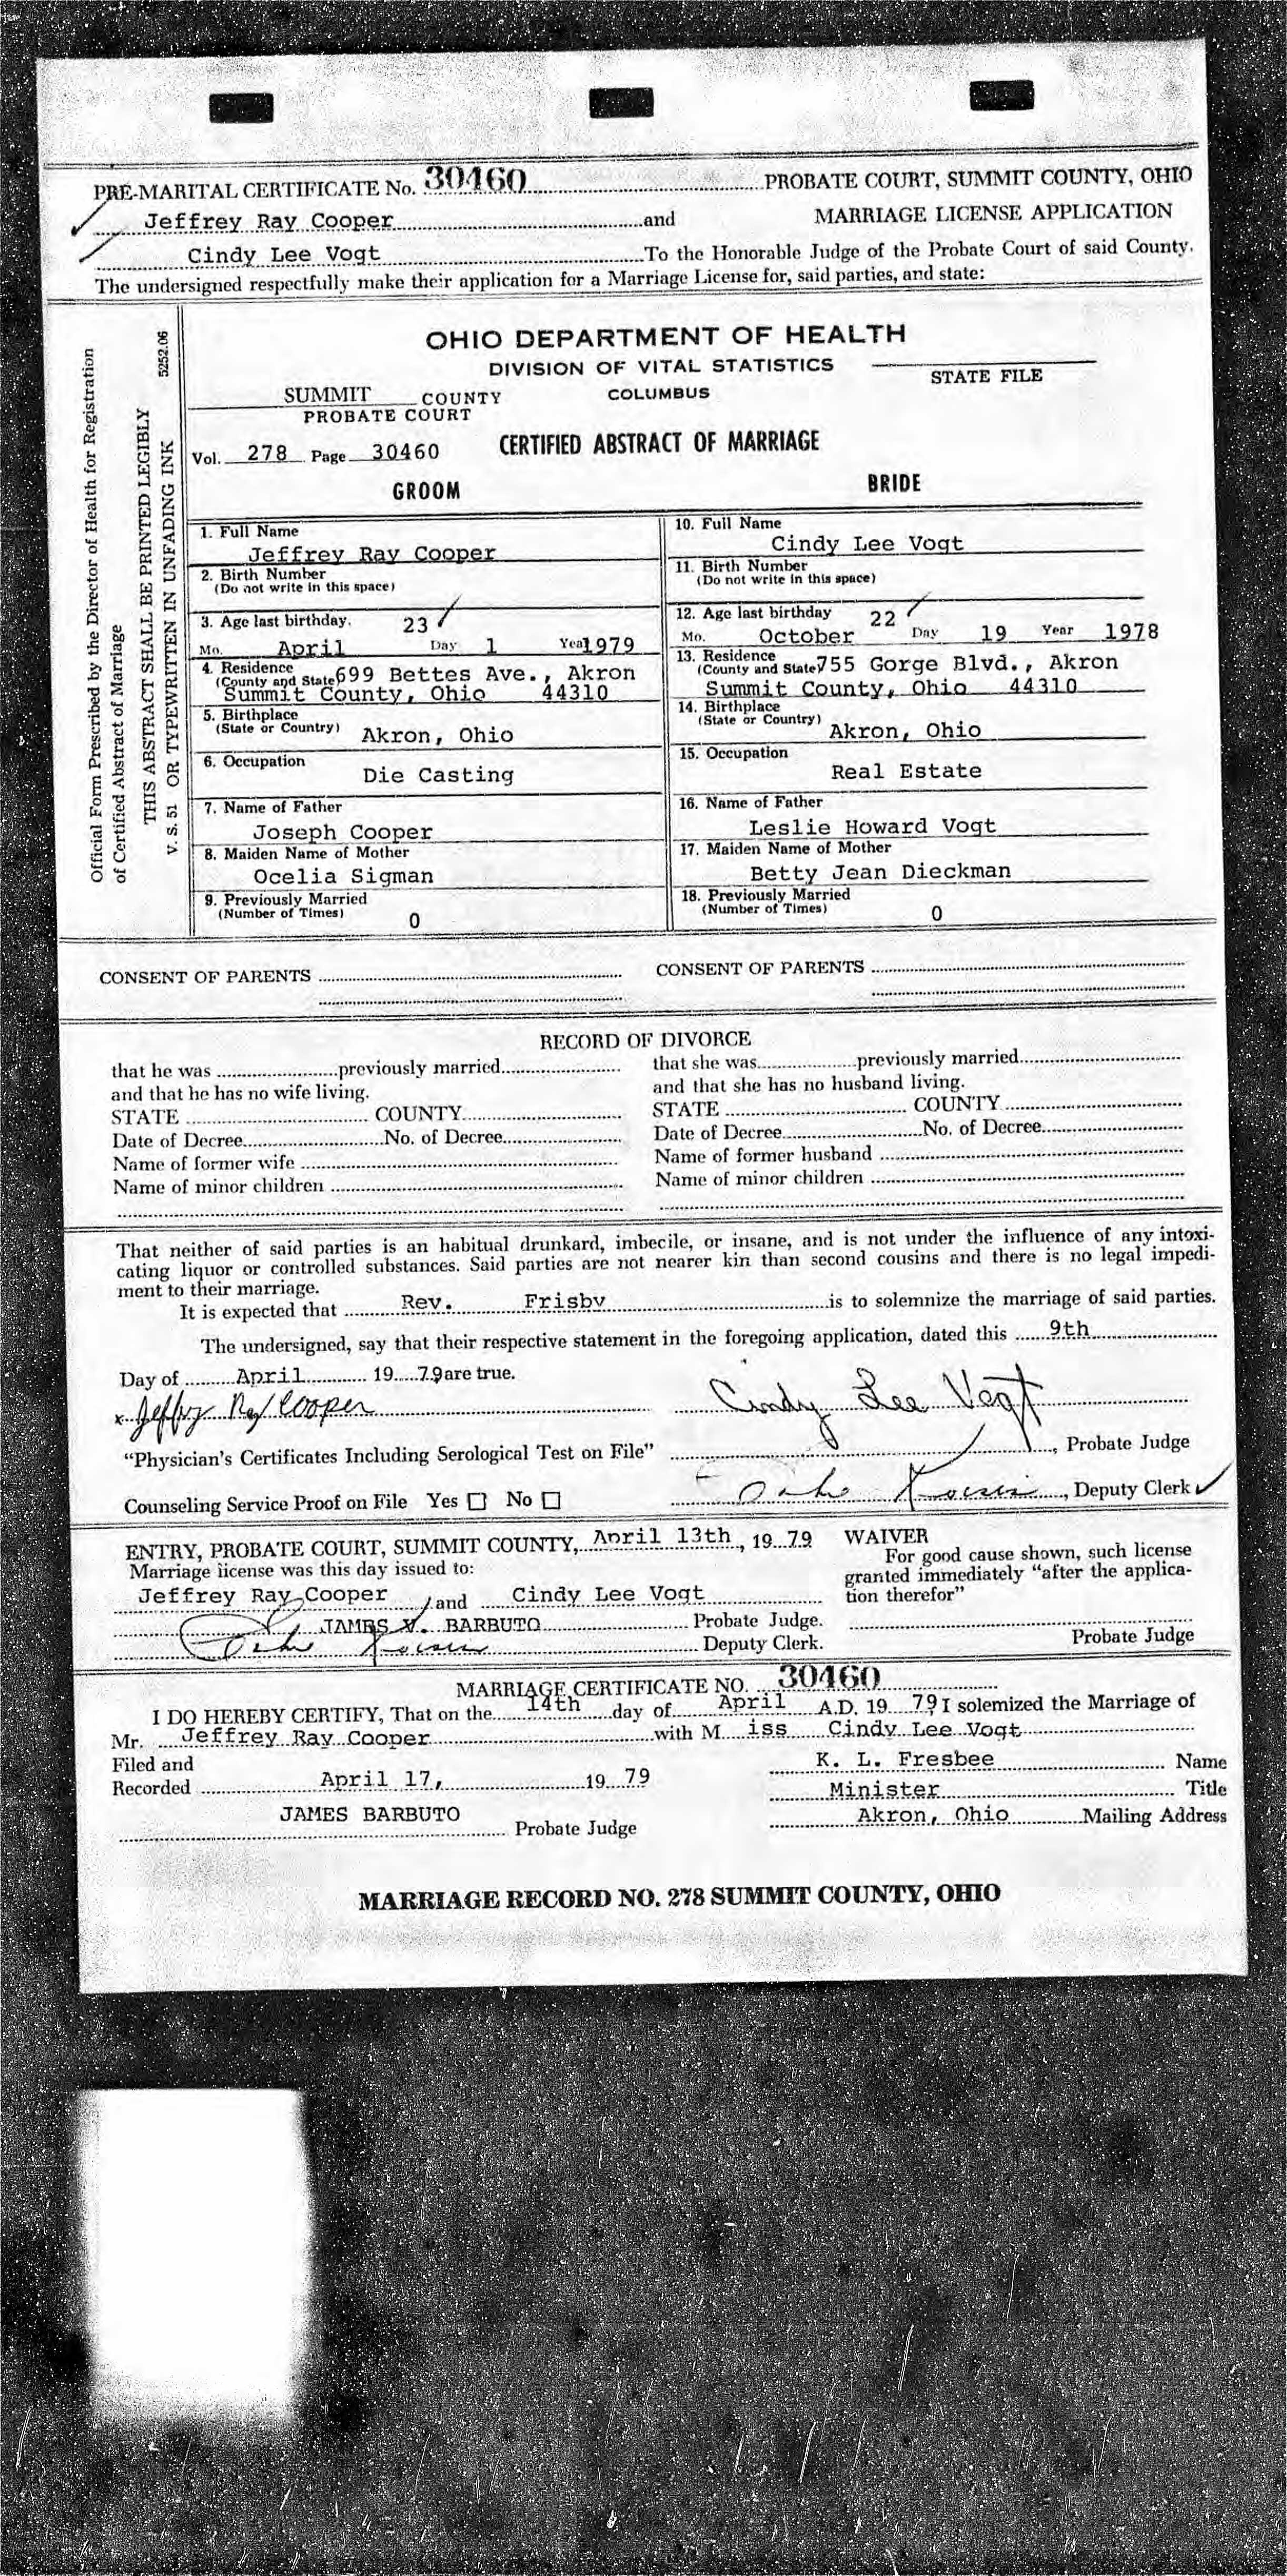 PRE-MARITAL CERTIFICATE No. 30460 PROBATE COURT, SUMMIT COUNTY, OHIO
Jeffrey Ray Cooper and MARRIAGE LICENSE APPLICATION
Cindy Lee Vogt To the Honorable Judge of the Probate Court of said County.
The undersigned respectfully make their application for a Marriage License for, said parties, and state:
Official Form Prescribed by the Director of Health for Registration
of Certified Abstract of Marriage
THIS ABSTRACT SHALL BE PRINTED LEGIBLY
V. S. 51 OR TYPEWRITTEN IN UNFADING INK 5252.06
OHIO DEPARTMENT OF HEALTH
DIVISION OF VITAL STATISTICS
STATE FILE
SUMMIT COUNTY COLUMBUS
PROBATE COURT
Vol. 278 Page 30460 CERTIFIED ABSTRACT OF MARRIAGE
GROOM
1. Full Name
Jeffrey Ray Cooper
2. Birth Number
(Do not write in this space)
3. Age last birthday. 23
Mo. April Day 1 Year 1979
4. Residence
(County and State) 699 Bettes Ave., Akron
Summit County, Ohio 44310
5. Birthplace
(State or Country) Akron, Ohio
6. Occupation
Die Casting
7. Name of Father
Joseph Cooper
8. Maiden Name of Mother
Ocelia Sigman
9. Previously Married
(Number of Times) 0
BRIDE
10. Full Name
Cindy Lee Vogt
11. Birth Number
(Do not write in this space)
12. Age last birthday 22
Mo. October Day 19 Year 1978
13. Residence
(County and State) 755 Gorge Blvd., Akron
Summit County, Ohio 44310
14. Birthplace
(State or Country) Akron, Ohio
15. Occupation
Real Estate
16. Name of Father
Leslie Howard Vogt
17. Maiden Name of Mother
Betty Jean Dieckman
18. Previously Married
(Number of Times) 0
CONSENT OF PARENTS CONSENT OF PARENTS
RECORD OF DIVORCE
that he was previously married
and that he has no wife living.
STATE COUNTY
Date of Decree No. of Decree
Name of former wife
Name of minor children
that she was previously married
and that she has no husband living.
STATE COUNTY
Date of Decree No. of Decree
Name of former husband
Name of minor children
That neither of said parties is an habitual drunkard, imbecile, or insane, and is not under the influence of any intoxi-
cating liquor or controlled substances. Said parties are not nearer kin than second cousins and there is no legal impedi-
ment to their marriage.
It is expected that Rev. Frisby is to solemnize the marriage of said parties.
The undersigned, say that their respective statement in the foregoing application, dated this 9th
Day of April 19 79 are true.
x Jeffry Ray Cooper Cindy Lee Vogt
"Physician's Certificates Including Serological Test on File" , Probate Judge
Counseling Service Proof on File Yes ☐ No ☐ , Deputy Clerk
ENTRY, PROBATE COURT, SUMMIT COUNTY, April 13th, 19 79
Marriage license was this day issued to:
Jeffrey Ray Cooper and Cindy Lee Vogt
JAMES V. BARBUTO Probate Judge.
Deputy Clerk.
WAIVER
For good cause shown, such license
granted immediately "after the applica-
tion therefor"
Probate Judge
MARRIAGE CERTIFICATE NO. 30460
I DO HEREBY CERTIFY, That on the 14th day of April A.D. 19 79 I solemized the Marriage of
Mr. Jeffrey Ray Cooper with M iss Cindy Lee Vogt
Filed and K. L. Fresbee Name
Recorded April 17, 19 79 Minister Title
JAMES BARBUTO Probate Judge Akron, Ohio Mailing Address
MARRIAGE RECORD NO. 278 SUMMIT COUNTY, OHIO